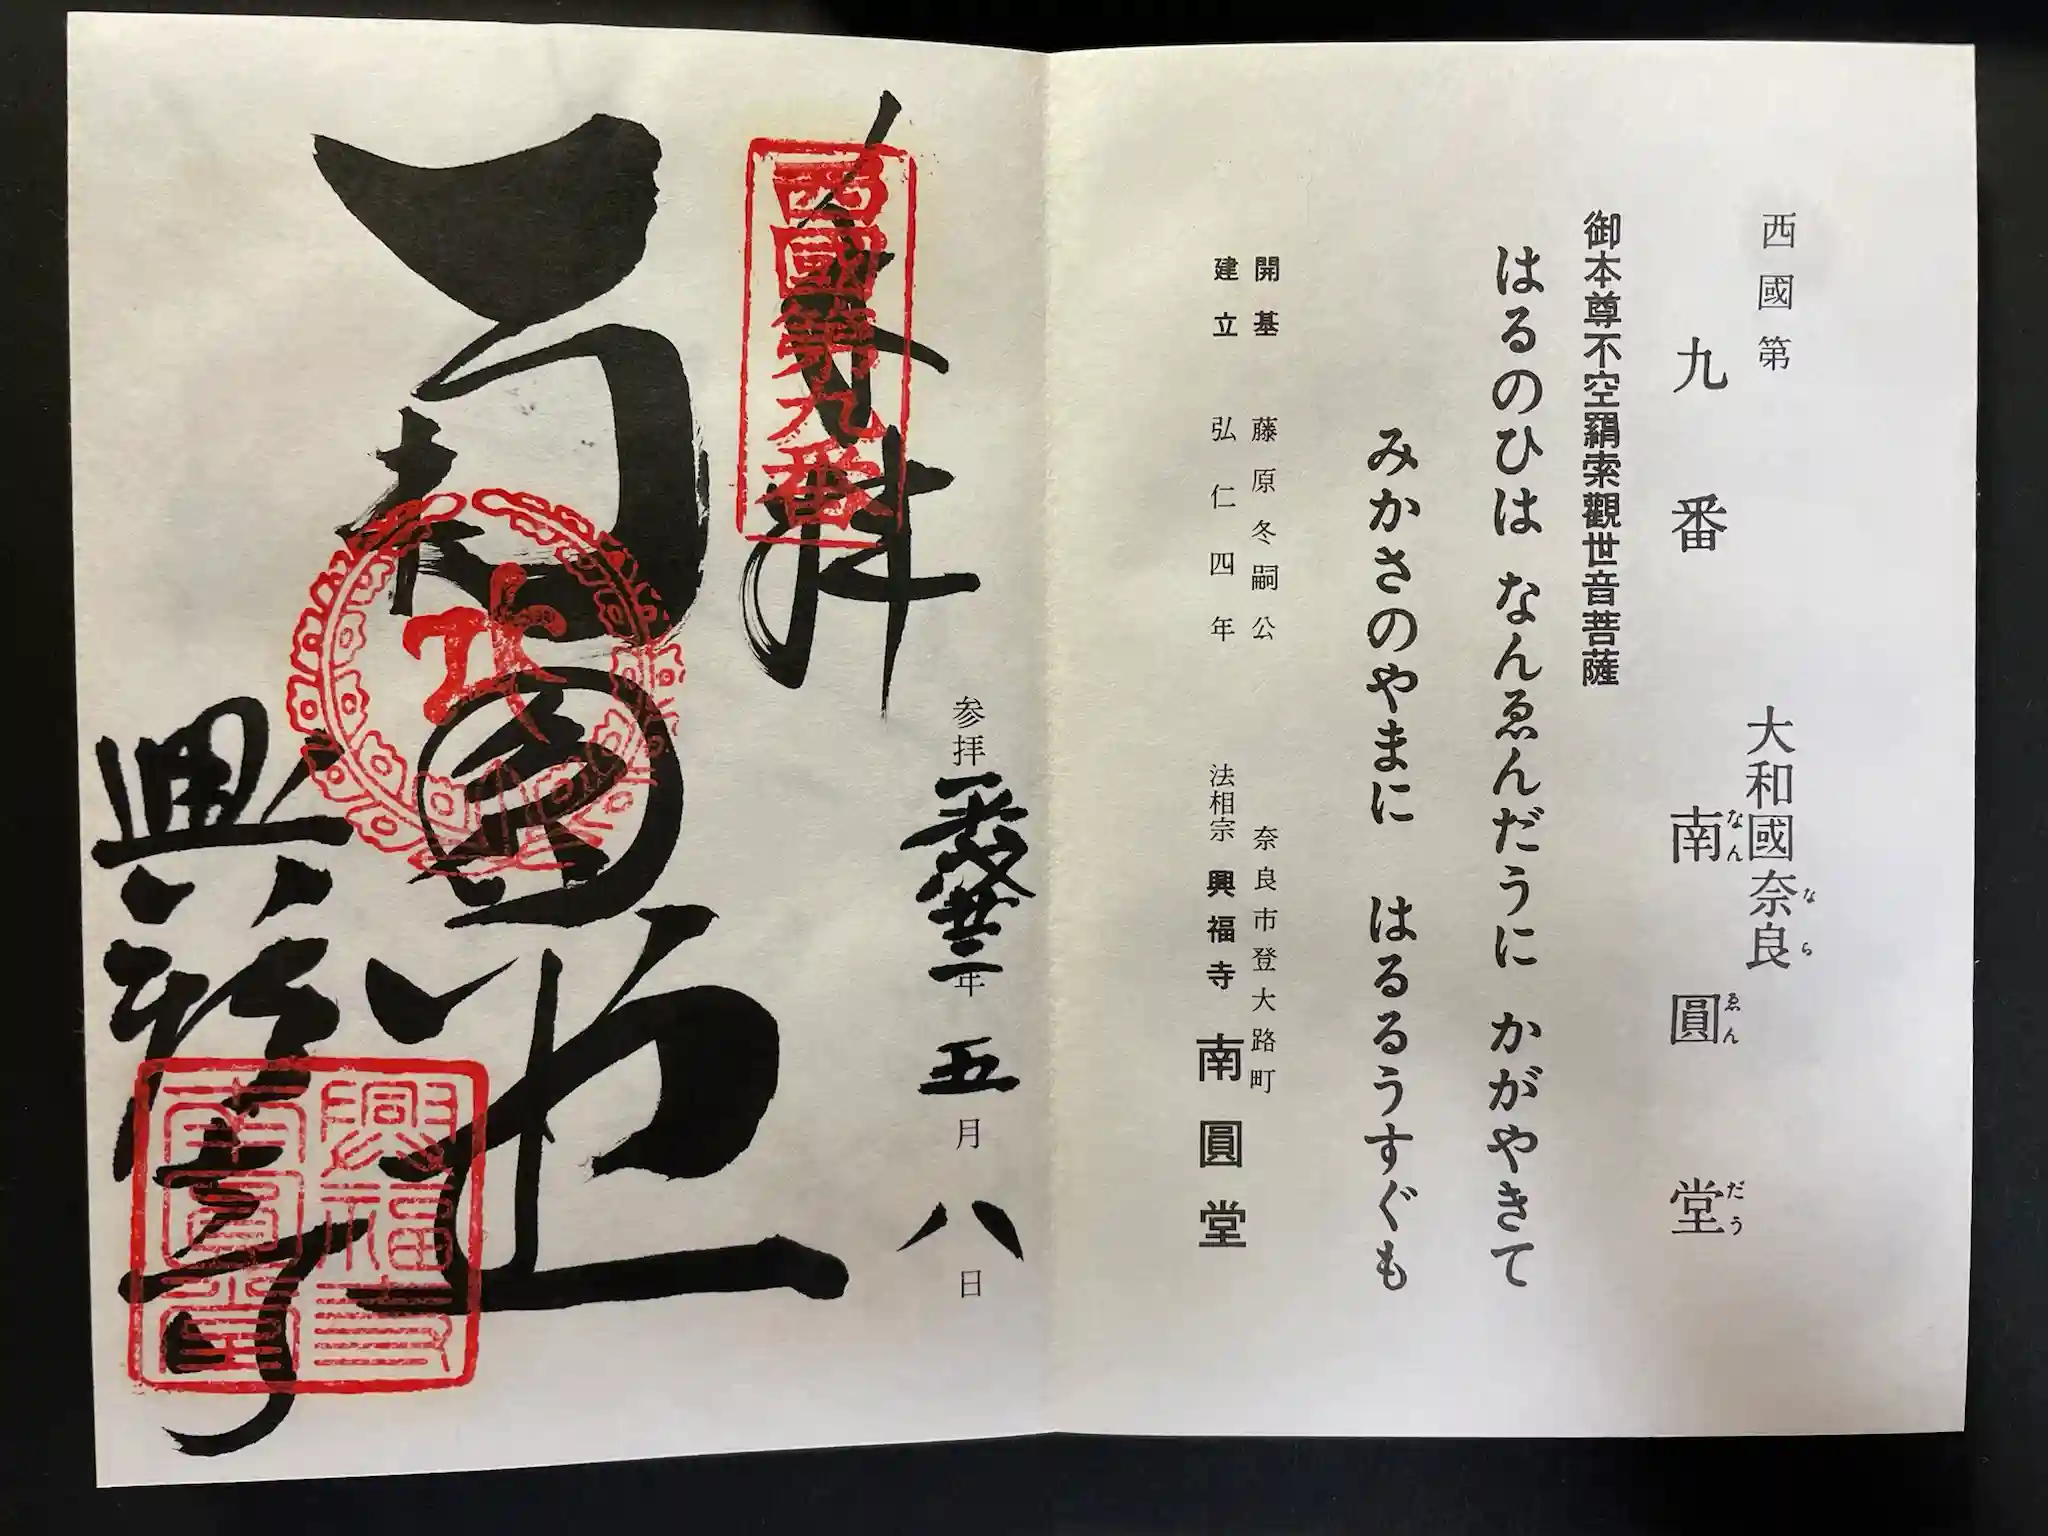 西國第
大和國奈良
なら
九番 南圓堂
なんゑんだう
御本尊不空羂索觀世音菩薩
はるのひは なんゑんだうに かがやきて
みかさのやまに はるるうすぐも
開基 藤原冬嗣公
奈良市登大路町
建立 弘仁四年
法相宗 興福寺 南圓堂
奉拝
西國第九番
参拝平成廿二年五月八日
興福寺
興福寺
南圓堂